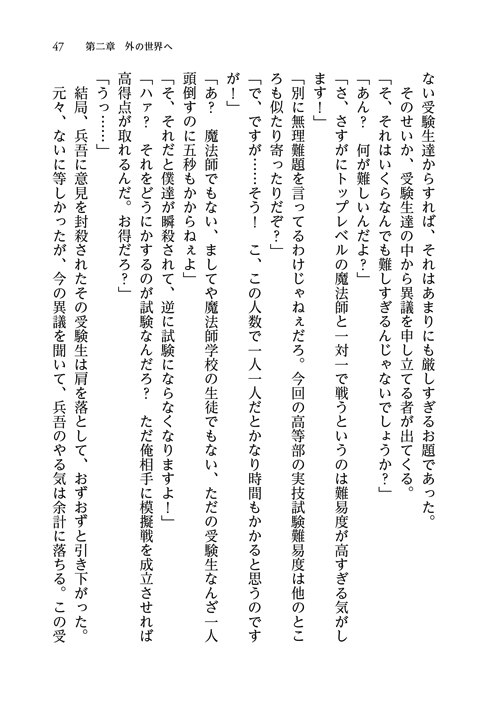 47　第二章　外の世界へ
ない受験生達からすれば、それはあまりにも厳しすぎるお題であった。
　そのせいか、受験生達の中から異議を申し立てる者が出てくる。
「そ、それはいくらなんでも難しすぎるんじゃないでしょうか？」
「あん？　何が難しいんだよ？」
「さ、さすがにトップレベルの魔法師と一対一で戦うというのは難易度が高すぎる気がし
ます！」
「別に無理難題を言ってるわけじゃねぇだろ。今回の高等部の実技試験難易度は他のとこ
ろも似たり寄ったりだぞ？」
「で、ですが……そう！　こ、この人数で一人一人だとかなり時間もかかると思うのです
が！」
「あ？　魔法師でもない、ましてや魔法師学校の生徒でもない、ただの受験生なんざ一人
頭倒すのに五秒もかからねぇよ」
「そ、それだと僕達が瞬殺されて、逆に試験にならなくなりますよ！」
「ハァ？　それをどうにかするのが試験なんだろ？　ただ俺相手に模擬戦を成立させれば
高得点が取れるんだ。お得だろ？」
「うっ……」
　結局、兵吾に意見を封殺されたその受験生は肩を落として、おずおずと引き下がった。
　元々、ないに等しかったが、今の異議を聞いて、兵吾のやる気は余計に落ちる。この受